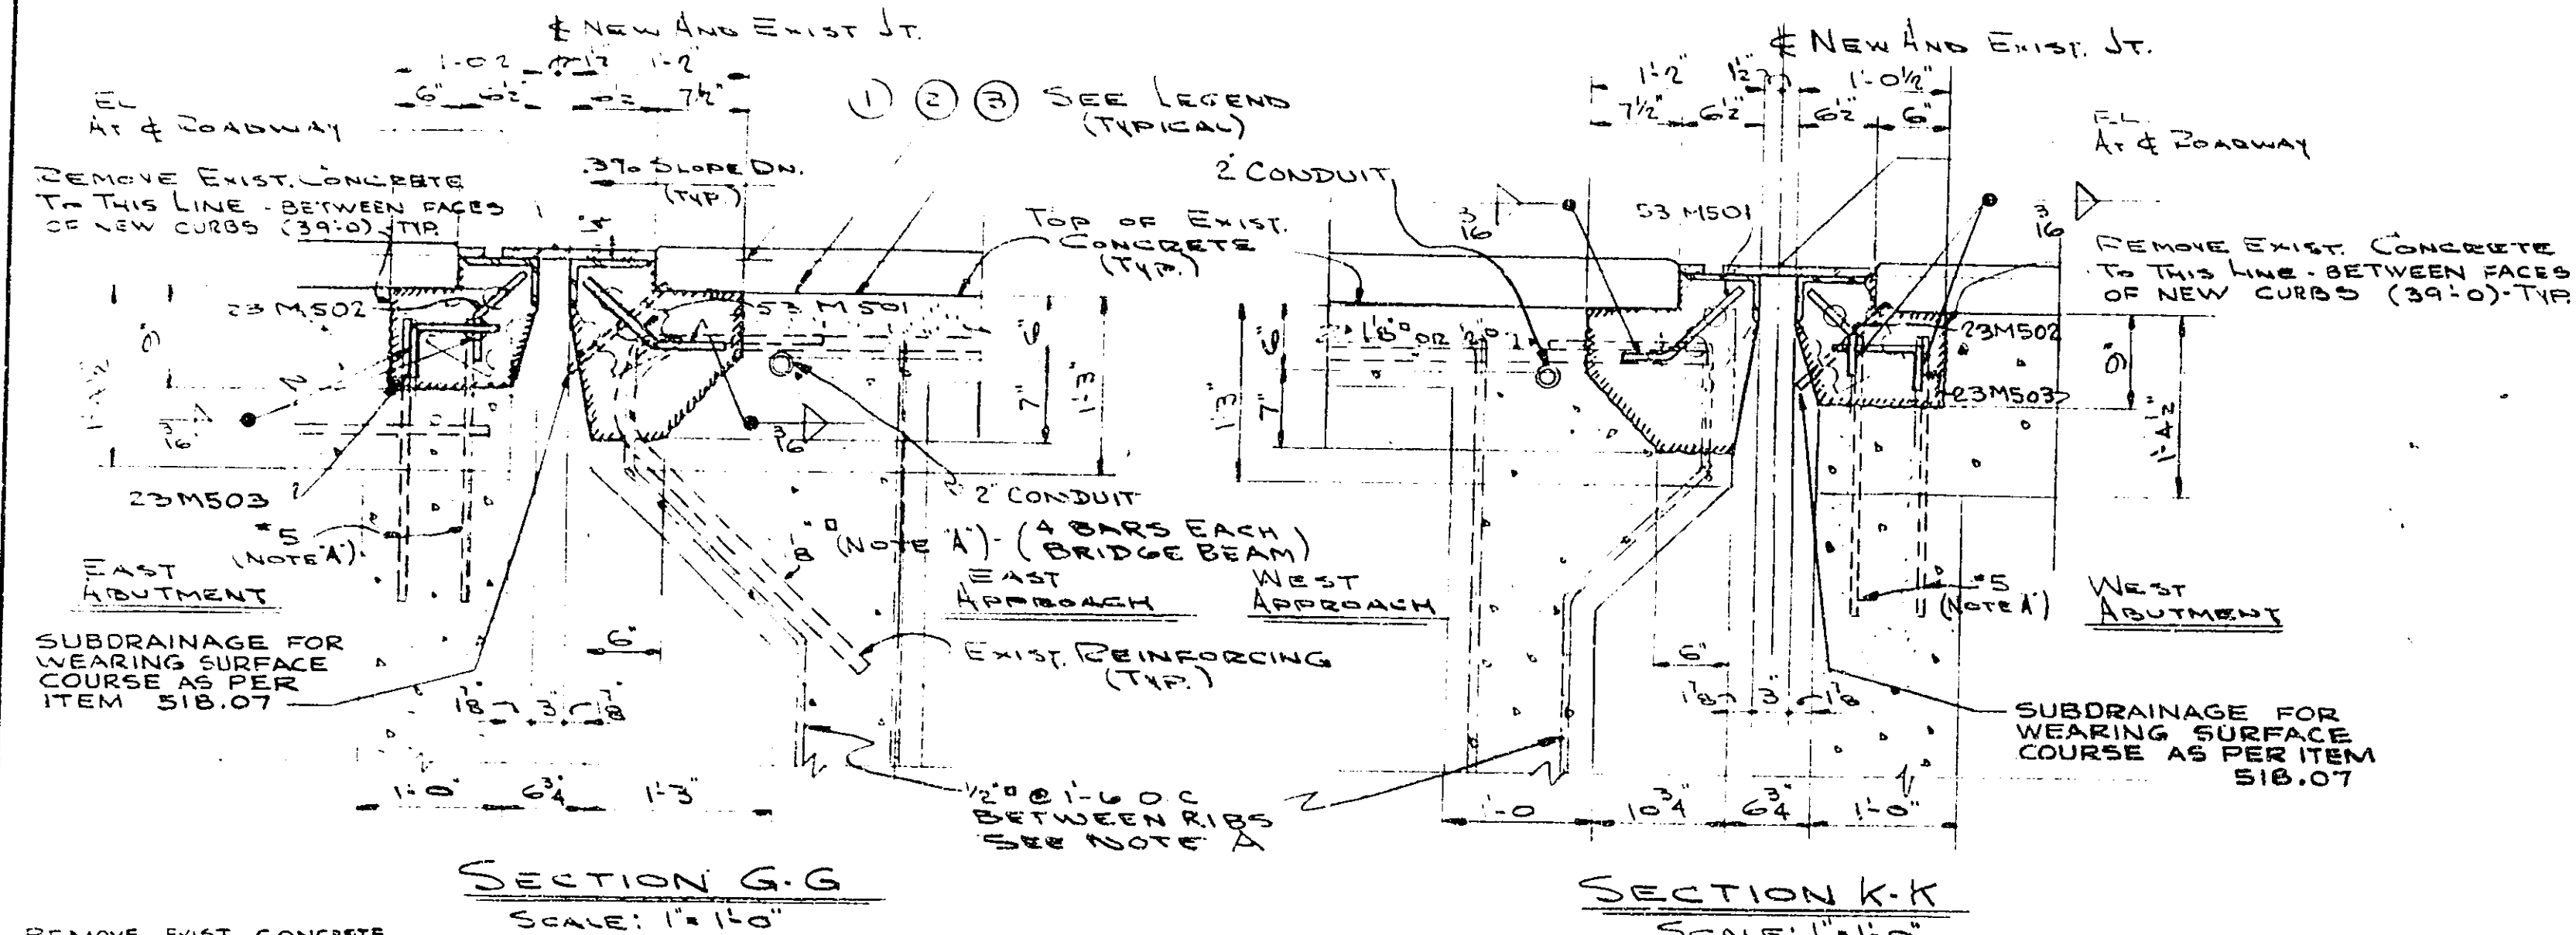 ℄ NEW AND EXIST JT.
1'-2"
6" 6½" 6½ 7½"
EL
AT ℄ ROADWAY
① ② ③ SEE LEGEND
(TYPICAL)
REMOVE EXIST. CONCRETE
TO THIS LINE - BETWEEN FACES
OF NEW CURBS (39'-0)-TYP.
.3% SLOPE DN.
(TYP.)
TOP OF EXIST.
CONCRETE
(TYP.)
23 M502
53 M501
9"
6"
7"
1'-3"
3/16
3/16
23M503
#5
(NOTE "A")
2" CONDUIT
(NOTE "A") - (4 BARS EACH
BRIDGE BEAM)
EAST
ABUTMENT
EAST
APPROACH
SUBDRAINAGE FOR
WEARING SURFACE
COURSE AS PER
ITEM 518.07
6"
EXIST. REINFORCING
(TYP.)
1⅞ 3" 1⅞"
1'-0" 6¾" 1'-3"
½"□ @ 1'-6 O.C
BETWEEN RIBS
SEE NOTE A
SECTION G-G
SCALE: 1"= 1'-0"
REMOVE EXIST. CONCRETE
℄ NEW AND EXIST. JT.
1'-2" 1½" 1'-0½"
7½" 6½" 6½" 6"
EL.
AT ℄ ROADWAY
2" CONDUIT
3/16
53 M501
3/16
REMOVE EXIST. CONCRETE
TO THIS LINE - BETWEEN FACES
OF NEW CURBS (39'-0)-TYP.
1⅛"□ OR ½"□
23M502
6"
7"
1'-3"
9"
23M503
1'-4½"
WEST
APPROACH
#5
(NOTE A")
WEST
ABUTMENT
6"
1⅞ 3" 1⅞
SUBDRAINAGE FOR
WEARING SURFACE
COURSE AS PER ITEM
518.07
1'-0 10¾" 6¾" 1'-0"
SECTION K-K
SCALE: 1"=1'-0"